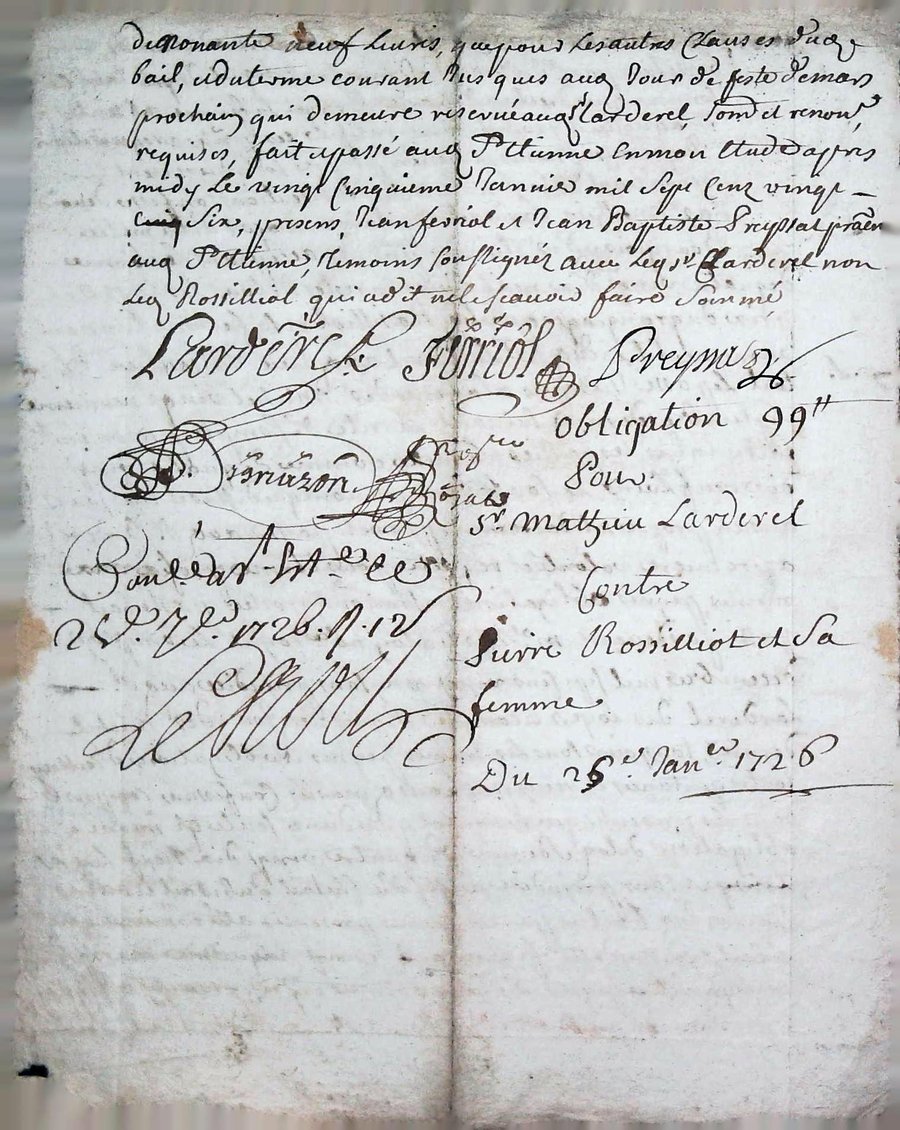 de nonante neuf livres, que pour les autres clauses dud.
bail, et du terme courant jusques aud. jour de feste de mars
prochain qui demeure reservé aud. Sr Larderel, Soms. et renon.
requises, fait et passé aud. St Etienne en mon Etude apres
midy Le vingt cinquieme Janvie mil Sept Cenz vingt
Six, presens, Jean ferriol et Jean Baptiste Preynat praēn
aud. St Etienne, temoins soussignez avec Ledt Sr Larderel non
Led. Rossilliol qui a dit ne le scavoir faire Sommé
Larderel Ferriol Preynat
obligation 99tt
Pour
Sr Mathieu Larderel
Contre
Pierre Rossilliot et Sa
femme
Du 25e Janer 1726
Con.lé à St Ete ce
2 1726. R. 12s